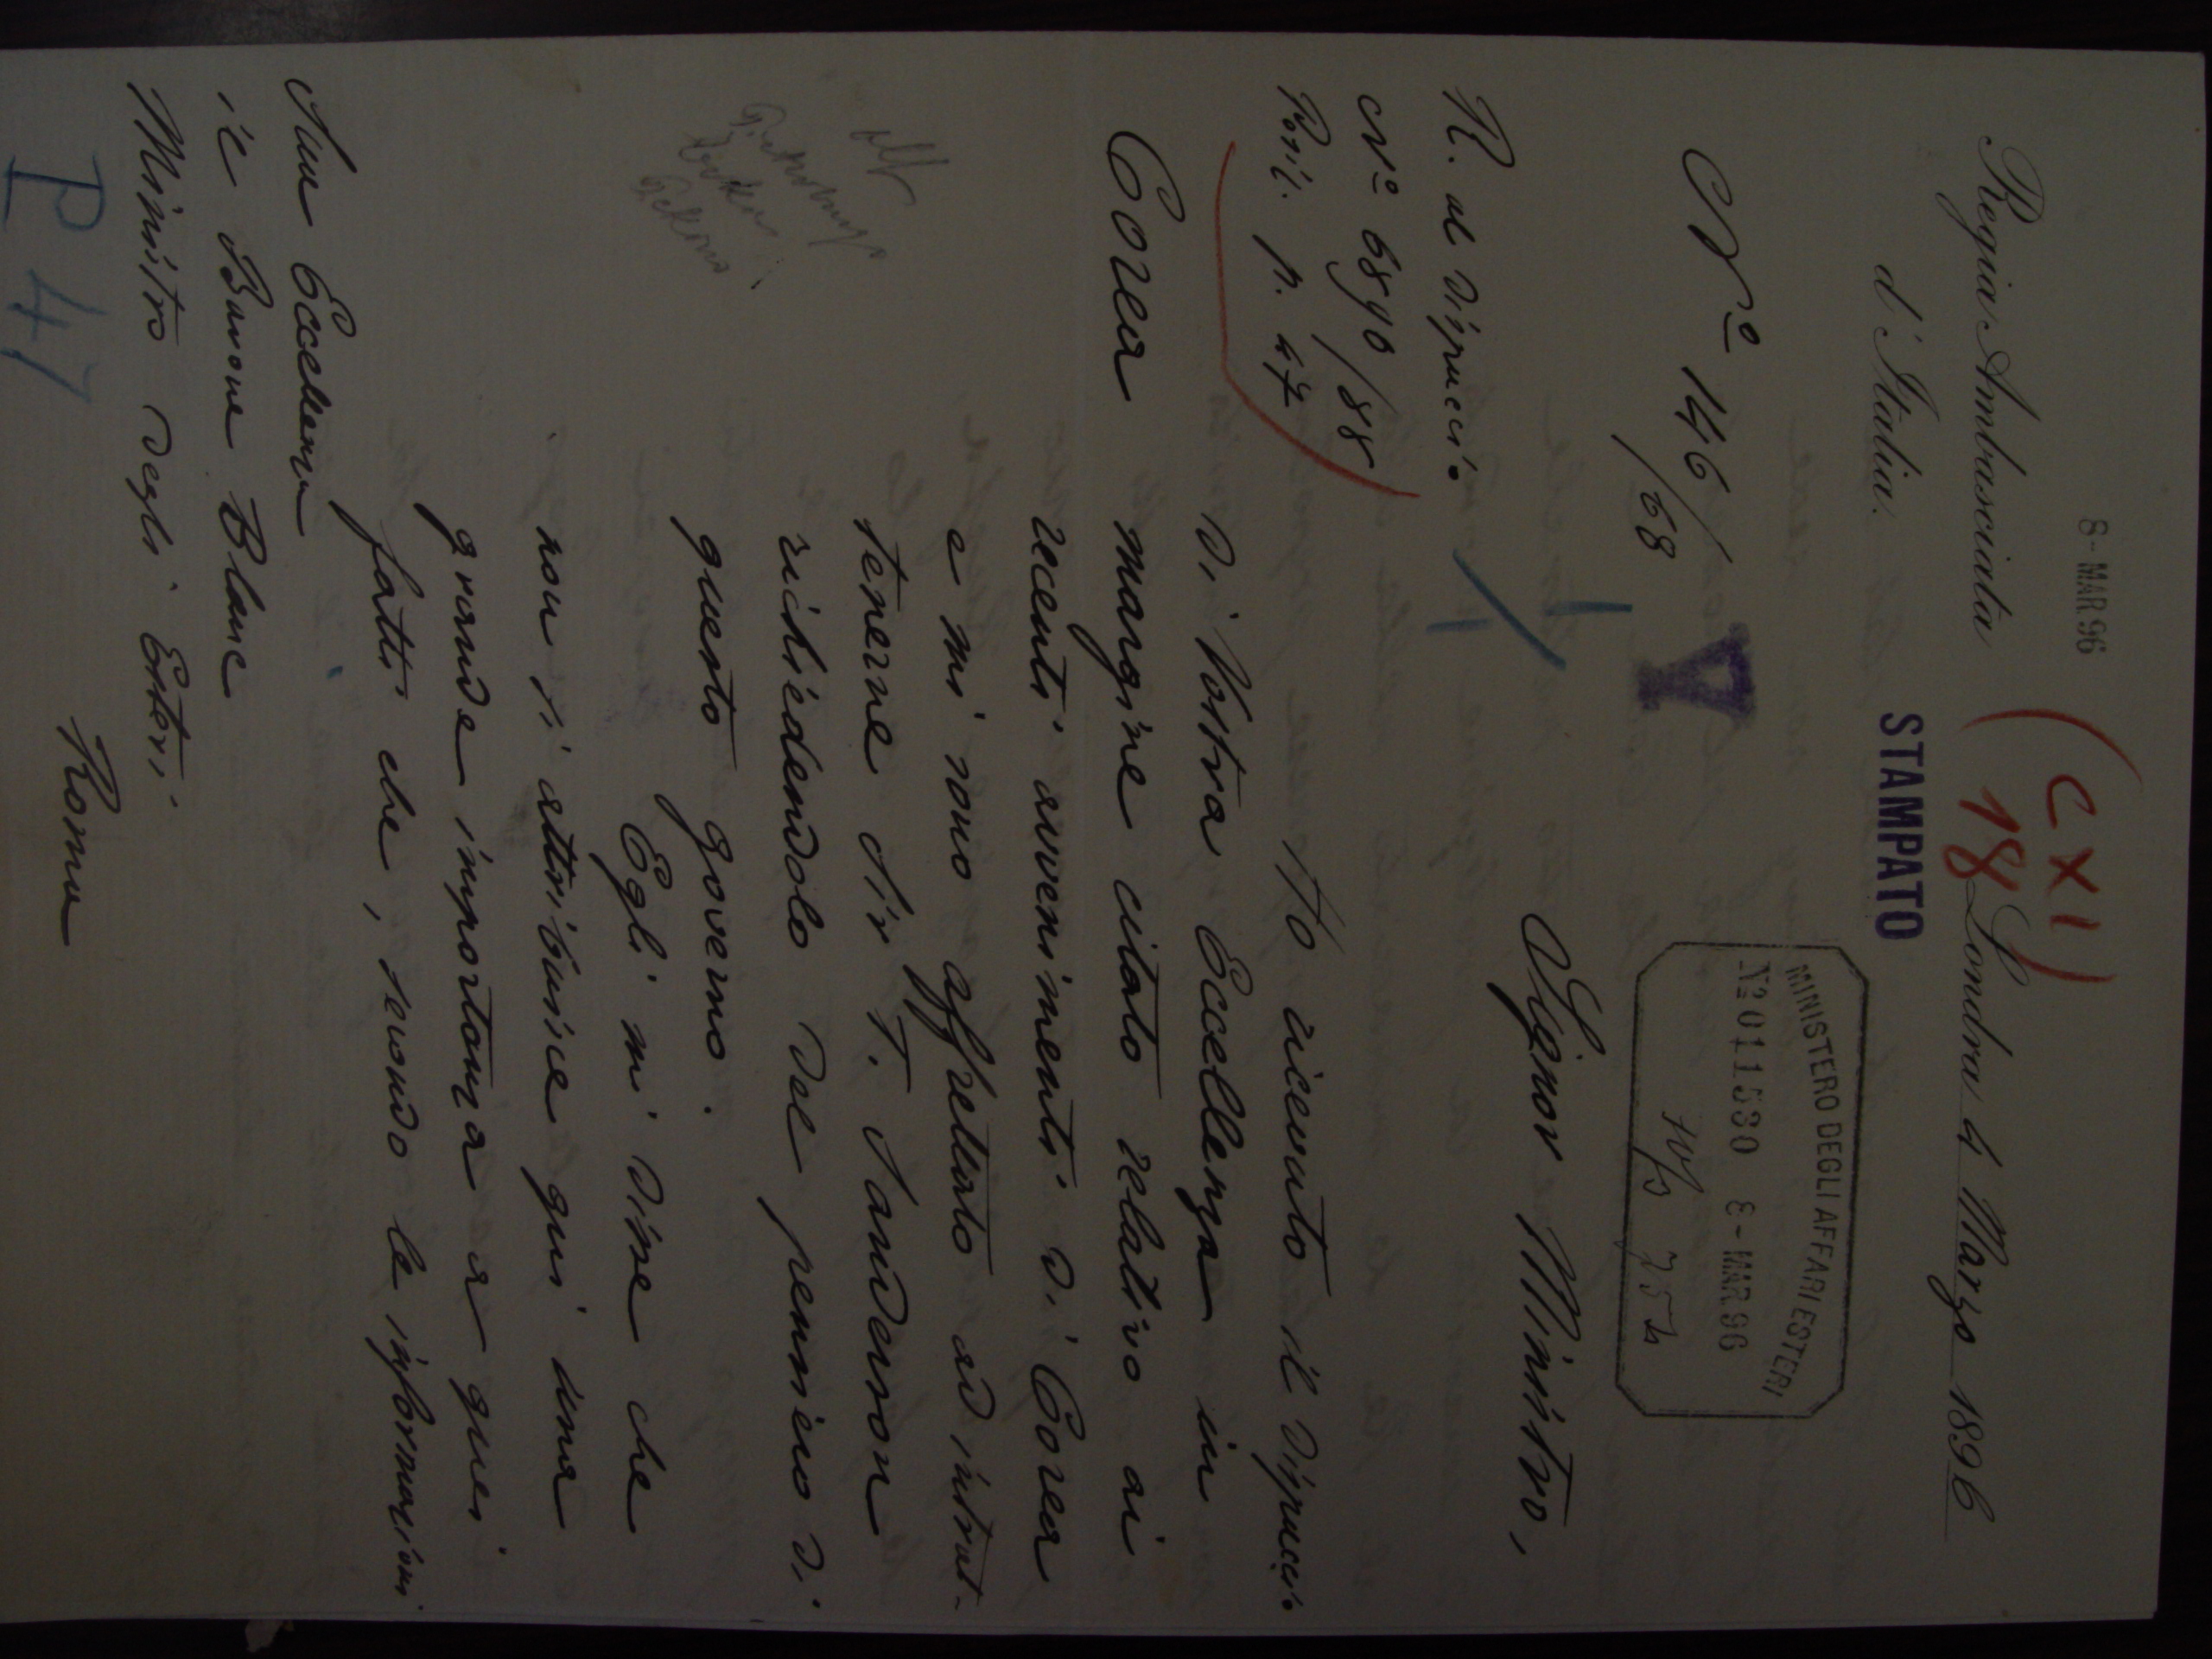 8-MAR 96
(CXI)
18
Regia Ambasciata
d'Italia.
Londra 4 Marzo 1896
STAMPATO
Nº 146/68
MINISTERO DEGLI AFFARI ESTERI
Nº 011530 8-MAR 96
R. al dispaccio
Nº 6890/88
Posiz. p. 47
Corea
Signor Ministro,
Ho ricevuto il dispaccio
di Vostra Eccellenza in
margine citato relativo ai
recenti avvenimenti di Corea
e mi sono affrettato ad intrat-
tenerne Sir T. Sanderson
richiedendolo del pensiero di
questo governo.
Egli mi disse che
non si attribuisce qui una
grande importanza a quei
fatti che, secondo le informazioni
Sua Eccellenza
il Barone Blanc
Ministro degli Esteri
Roma
P 47